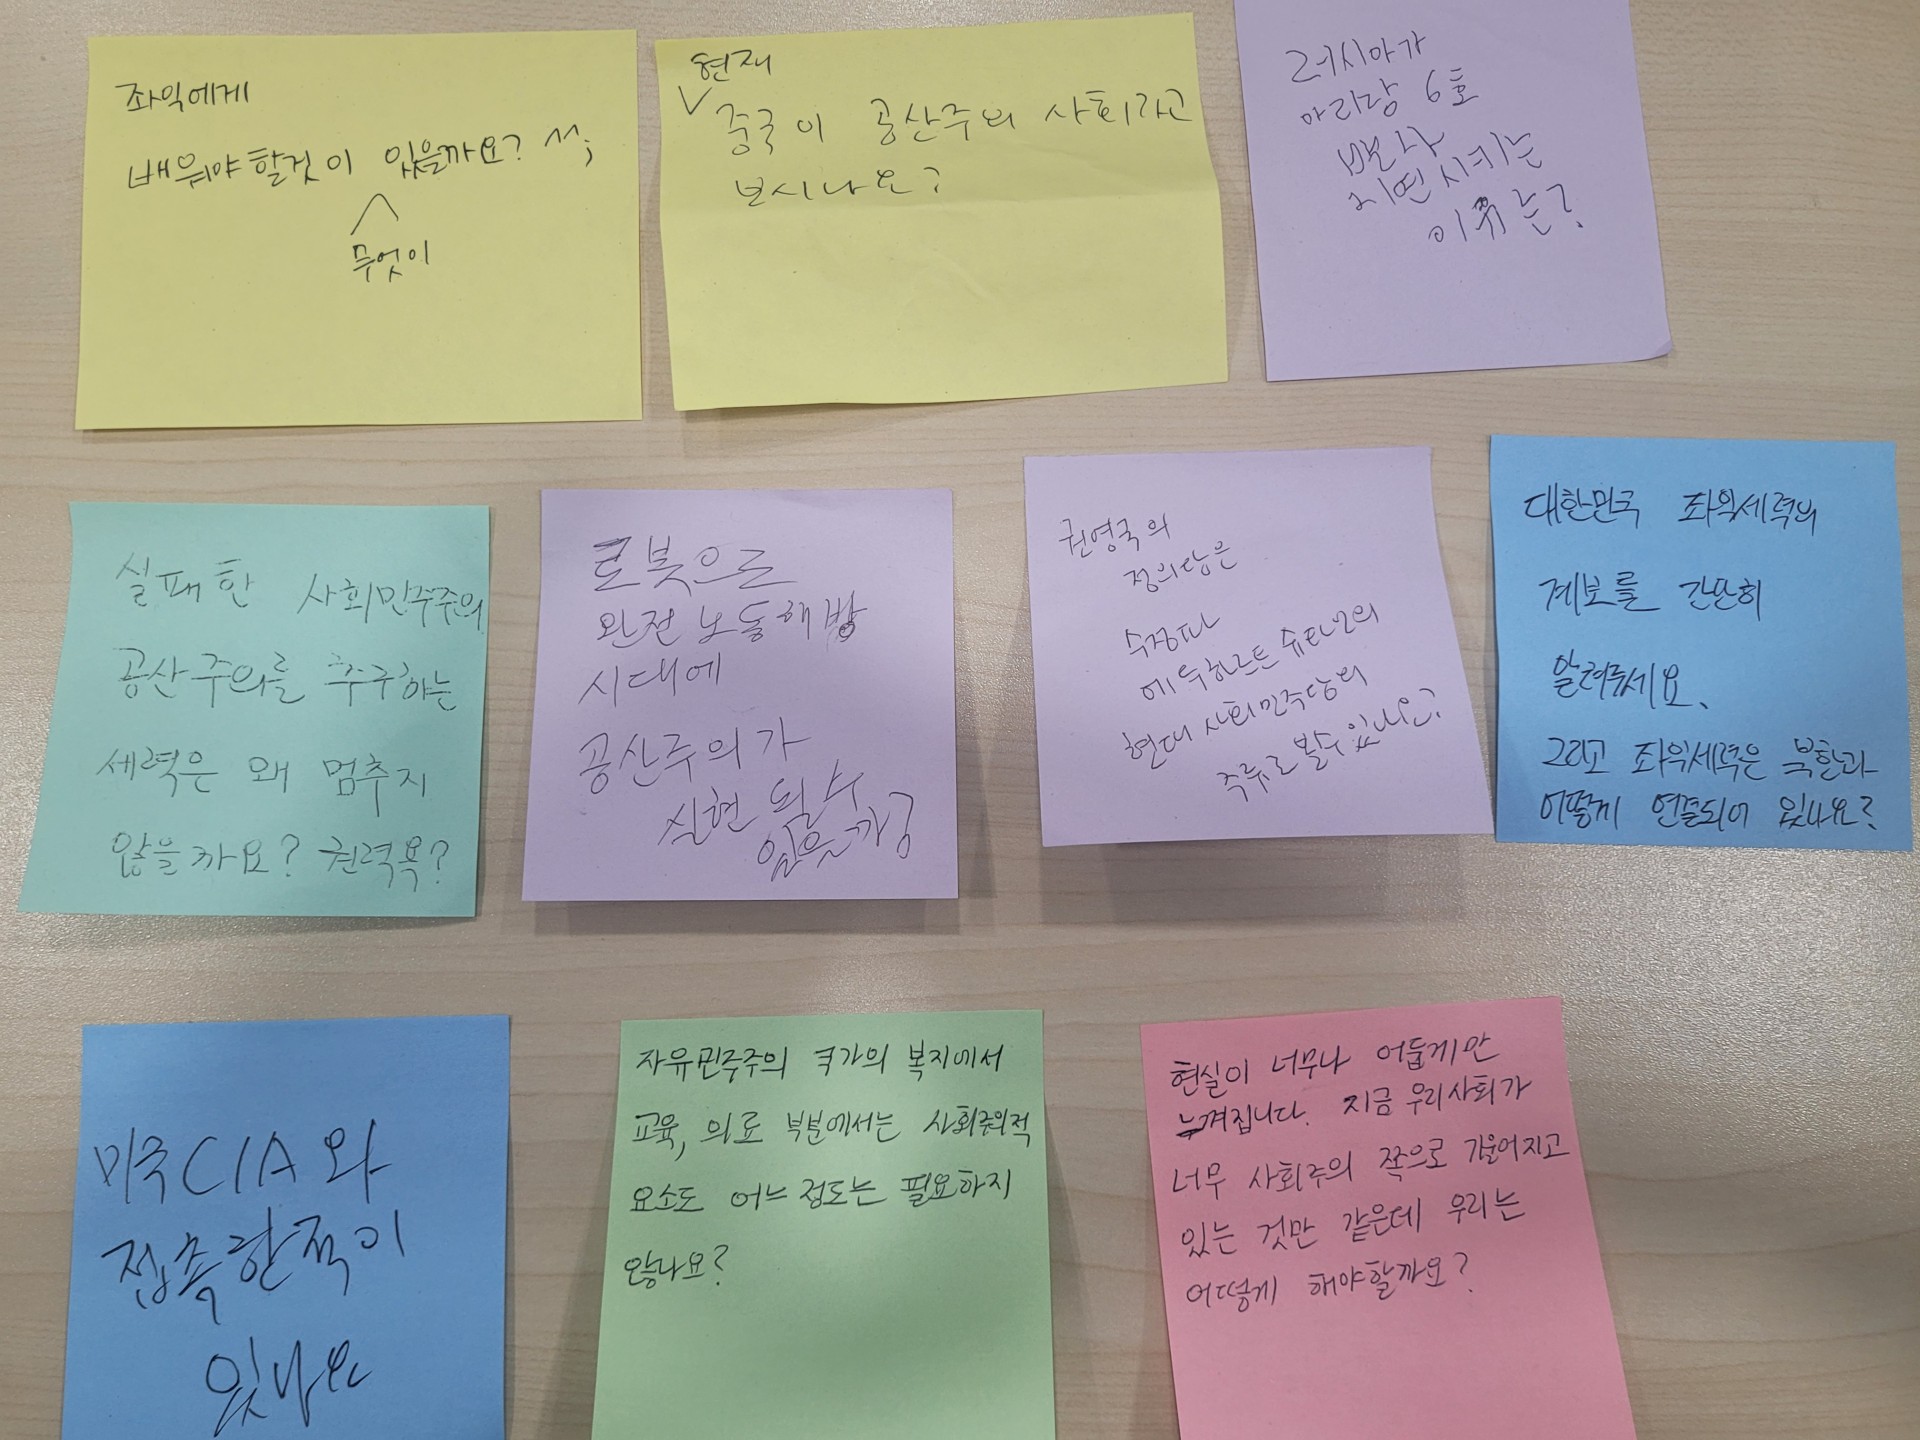 좌익에게
배워야 할것이 있을까요? ^^;
무엇이
현재
중국이 공산주의 사회라고
보시나요?
러시아가
아리랑 6호
발사
지연 시키는
이유는?
실패한 사회민주주의
공산주의를 추구하는
세력은 왜 멈추지
않을까요? 권력욕?
로봇으로
완전 노동해방
시대에
공산주의가
실현 될 수
있을까?
권영국의
정의당은
수정파
에두하르트 슈타인의
현대 사회민주당의
주류로 볼수 있나요?
대한민국 좌익세력의
계보를 간단히
알려주세요.
그리고 좌익세력은 북한과
어떻게 연결되어 있나요?
미국 CIA 와
접촉한적이
있나요
자유민주주의 국가의 복지에서
교육, 의료 부분에서는 사회주의적
요소도 어느 정도는 필요하지
않나요?
현실이 너무나 어둡게만
느껴집니다. 지금 우리사회가
너무 사회주의 쪽으로 기울어지고
있는 것만 같은데 우리는
어떻게 해야할까요?